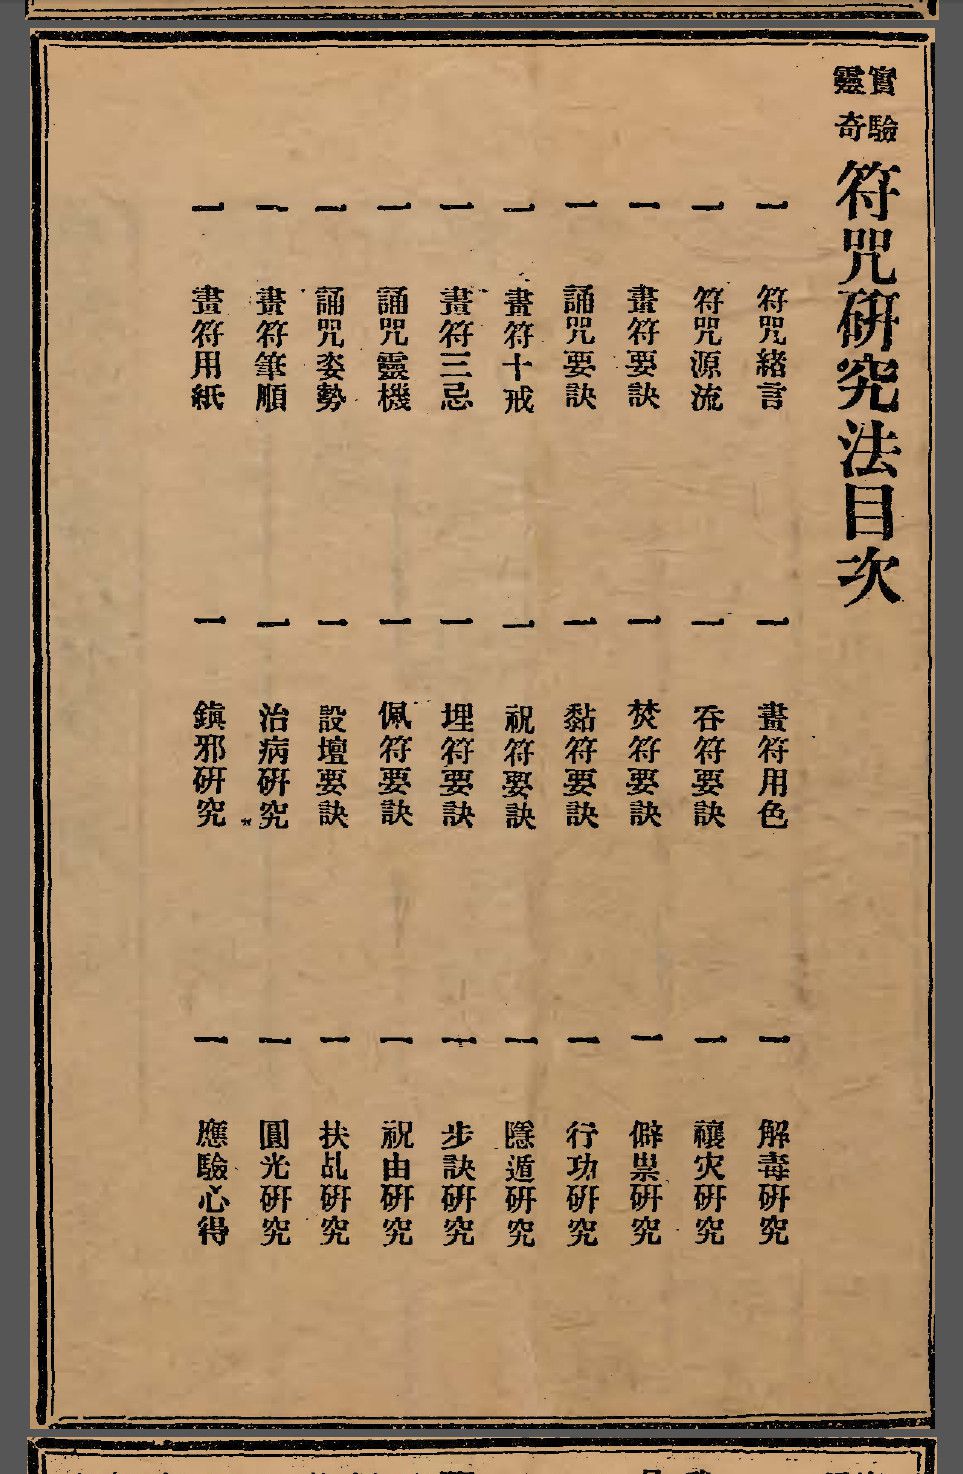 實驗靈奇 符咒研究法目次
一 符咒緒言
一 符咒源流
一 畫符要訣
一 誦咒要訣
一 畫符十戒
一 畫符三忌
一 誦咒靈機
一 誦咒姿勢
一 畫符筆順
一 畫符用紙
一 畫符用色
一 吞符要訣
一 焚符要訣
一 黏符要訣
一 祝符要訣
一 埋符要訣
一 佩符要訣
一 設壇要訣
一 治病研究
一 鎭邪研究
一 解毒研究
一 禳灾研究
一 僻祟研究
一 行功研究
一 隱遁研究
一 步訣研究
一 祝由研究
一 扶乩研究
一 圓光研究
一 應驗心得